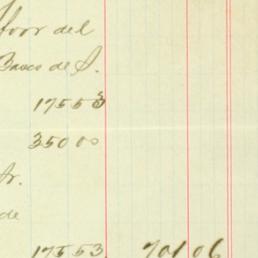 favor del
Banco de S.
175 53
350 00
Sr.
de
175 53 701 06